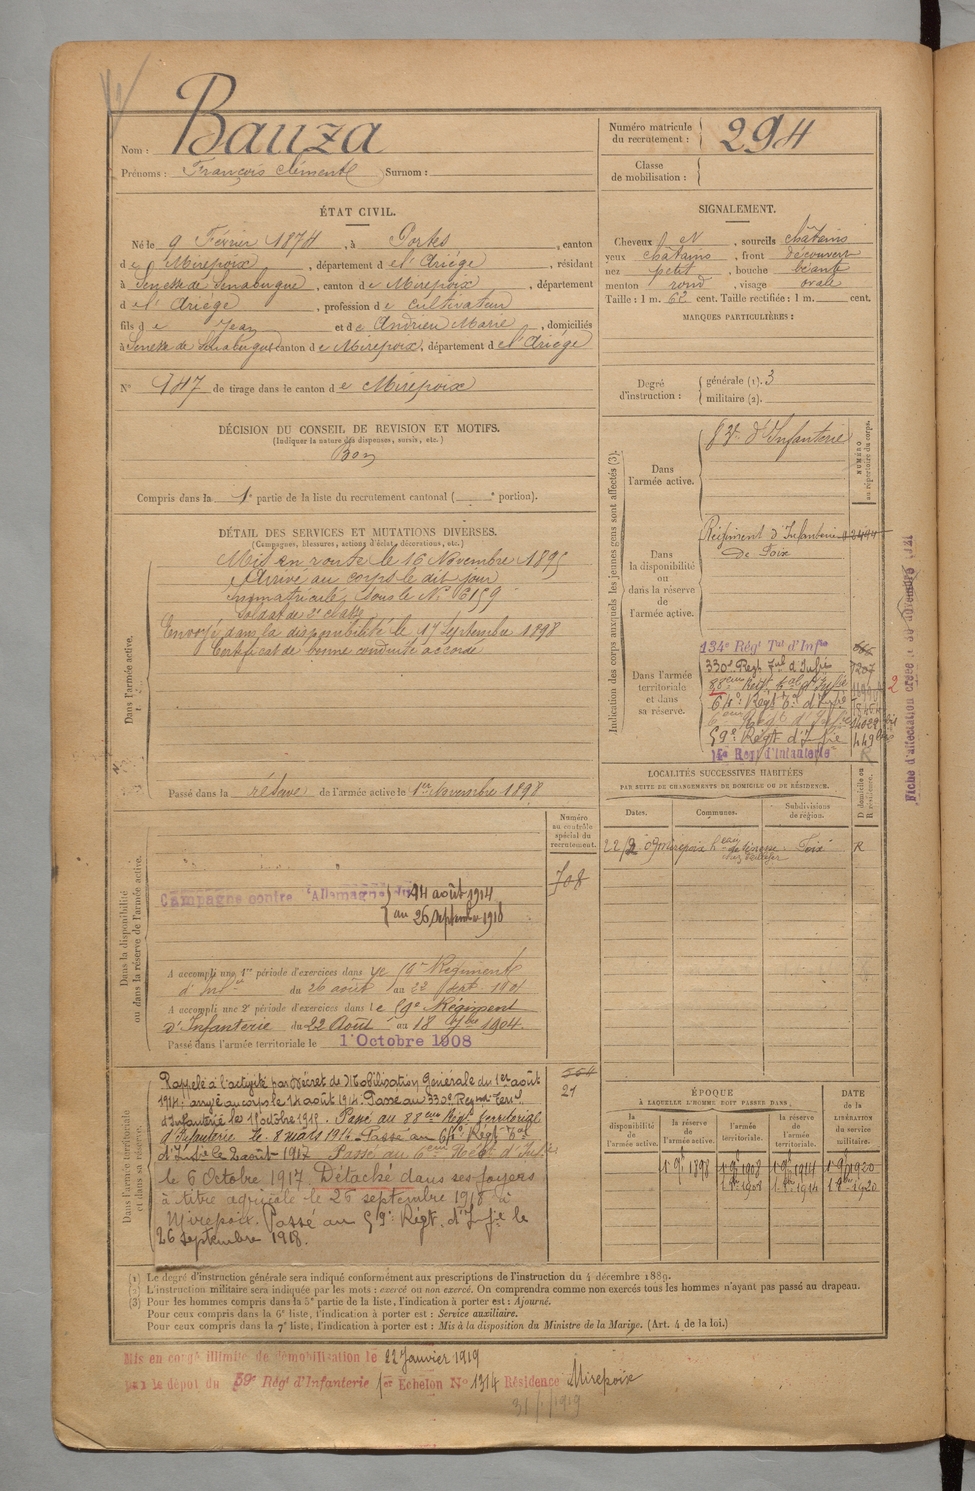 Nom : Bauza
Prénoms : François Clément Surnom :
Numéro matricule du recrutement : 294
Classe de mobilisation :
ÉTAT CIVIL.
Né le 9 Février 1874, à Portes, canton
de Mirepoix, département de l'Ariège, résidant
à Senesse de Senabugue, canton de Mirepoix, département
de l'Ariège, profession de cultivateur
fils de Jean et de Andrieu Marie, domiciliés
à Senesse de Senabugue canton de Mirepoix, département de l'Ariège
N° 147 de tirage dans le canton de Mirepoix
DÉCISION DU CONSEIL DE REVISION ET MOTIFS.
(Indiquer la nature des dispenses, sursis, etc.)
Bon
Compris dans la 1e partie de la liste du recrutement cantonal ( e portion).
SIGNALEMENT.
Cheveux , sourcils châtains
yeux châtains, front découvert
nez petit, bouche béante
menton rond, visage ovale
Taille : 1 m. 62 cent. Taille rectifiée : 1 m. cent.
MARQUES PARTICULIÈRES :
Degré d'instruction : générale (1). 3
militaire (2).
DÉTAIL DES SERVICES ET MUTATIONS DIVERSES.
(Campagnes, blessures, actions d'éclat, décorations, etc.)
Dans l'armée active.
Mis en route le 16 Novembre 1895
Arrivé au corps le dit jour
Immatriculé sous le N° 6159
Soldat de 2e classe
Envoyé dans la disponibilité le 17 Septembre 1898
Certificat de bonne conduite accordé
Passé dans la réserve de l'armée active le 1er Novembre 1898
Indication des corps auxquels les jeunes gens sont affectés (3).
NUMÉRO au répertoire du corps.
Dans l'armée active.
d'Infanterie
Dans la disponibilité ou dans la réserve de l'armée active.
Régiment d'Infanterie
de Foix
Dans l'armée territoriale et dans sa réserve.
134e Régt Tal d'Infie
330e Régt Tal d'Infie 7207
88eme Régt Tal d'Infie
64e Régt Tal d'Infie
6eme Régt d'Infie
59e Régt d'Infie
14e Regt d'Infanterie
Fiche d'affectation créée
LOCALITÉS SUCCESSIVES HABITÉES
PAR SUITE DE CHANGEMENTS DE DOMICILE OU DE RÉSIDENCE.
Dates. Communes. Subdivisions de région. D domicile ou R résidence.
Mirepoix Foix R
Dans la disponibilité ou dans la réserve de l'armée active.
Numéro au contrôle spécial du recrutement.
708
Campagne contre l'Allemagne du 14 août 1914
au 26 septembre 1918
A accompli une 1re période d'exercices dans le 59e Régiment
d'Infie du 26 août au 22 Sept. 1901
A accompli une 2e période d'exercices dans le 59e Régiment
d'Infanterie du 22 Août au 18 7bre 1904.
Passé dans l'armée territoriale le 1 Octobre 1908
Dans l'armée territoriale et dans sa réserve.
21
Rappelé à l'activité par Décret de Mobilisation Générale du 1er août
1914, arrivé au corps le 14 août 1914. Passé au 330e Régnt Terri
d'Infanterie le 1er octobre 1915. Passé au 88eme Régt territorial
d'Infanterie le 8 mars 1916. Passé au 64e Régt Tal
d'Infie le 2 août 1917. Passé au 6eme Régt d'Infie
le 6 Octobre 1917. Détaché dans ses foyers
à titre agricole le 26 septembre 1918 à
Mirepoix. Passé au 59e Régt. d'Infie le
26 septembre 1918.
ÉPOQUE
À LAQUELLE L'HOMME DOIT PASSER DANS
DATE de la LIBÉRATION DU service militaire.
la disponibilité de l'armée active. la réserve de l'armée active. l'armée territoriale. la réserve de l'armée territoriale.
1er 9bre 1898 1er 9bre 1908 1er 9bre 1914 1er 9bre 1920
1er 8bre 1908 1er 8bre 1914 1er 8bre 1920
(1) Le degré d'instruction générale sera indiqué conformément aux prescriptions de l'instruction du 4 décembre 1889.
(2) L'instruction militaire sera indiquée par les mots : exercé ou non exercé. On comprendra comme non exercés tous les hommes n'ayant pas passé au drapeau.
(3) Pour les hommes compris dans la 5e partie de la liste, l'indication à porter est : Ajourné.
Pour ceux compris dans la 6e liste, l'indication à porter est : Service auxiliaire.
Pour ceux compris dans la 7e liste, l'indication à porter est : Mis à la disposition du Ministre de la Marine. (Art. 4 de la loi.)
Mis en congé illimité de démobilisation le 22 Janvier 1919
par le dépôt du 59e Régt d'Infanterie 1er Echelon N° 1314 Résidence Mirepoix
31/1/1919